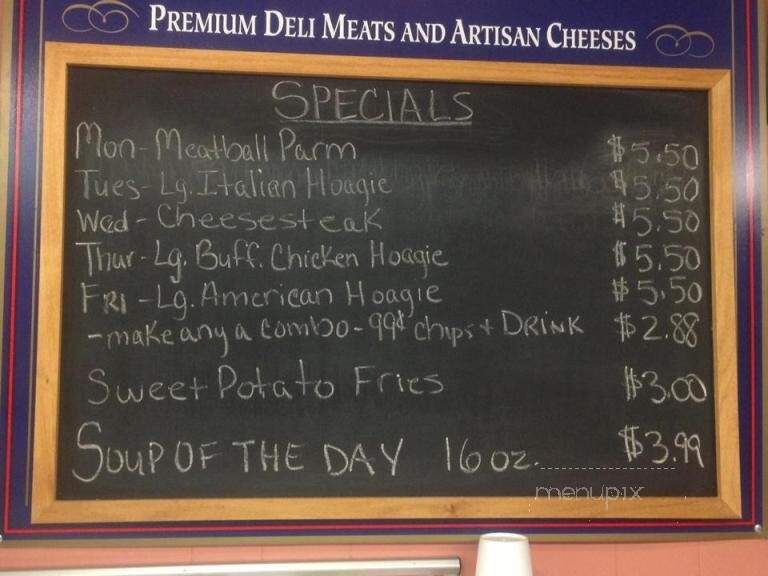 PREMIUM DELI MEATS AND ARTISAN CHEESES
SPECIALS
Mon - Meatball Parm $5.50
Tues - Lg. Italian Hoagie $5.50
Wed - Cheesesteak $5.50
Thur - Lg. Buff. Chicken Hoagie $5.50
FRI - Lg. American Hoagie $5.50
- make any a combo - 99¢ chips + DRINK $2.88
Sweet Potato Fries $3.00
SOUP OF THE DAY 16 oz. $3.99
menupix